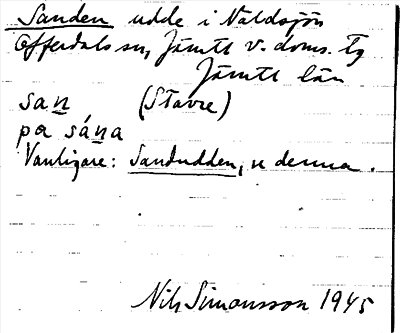 Sanden udde i Näldsjön
Offerdals sn, Jämtl v. doms. tg
Jämtl län
san (Stavre)
pa sána
Vanligare: Sandudden, se denna.
Nils Simonsson 1945